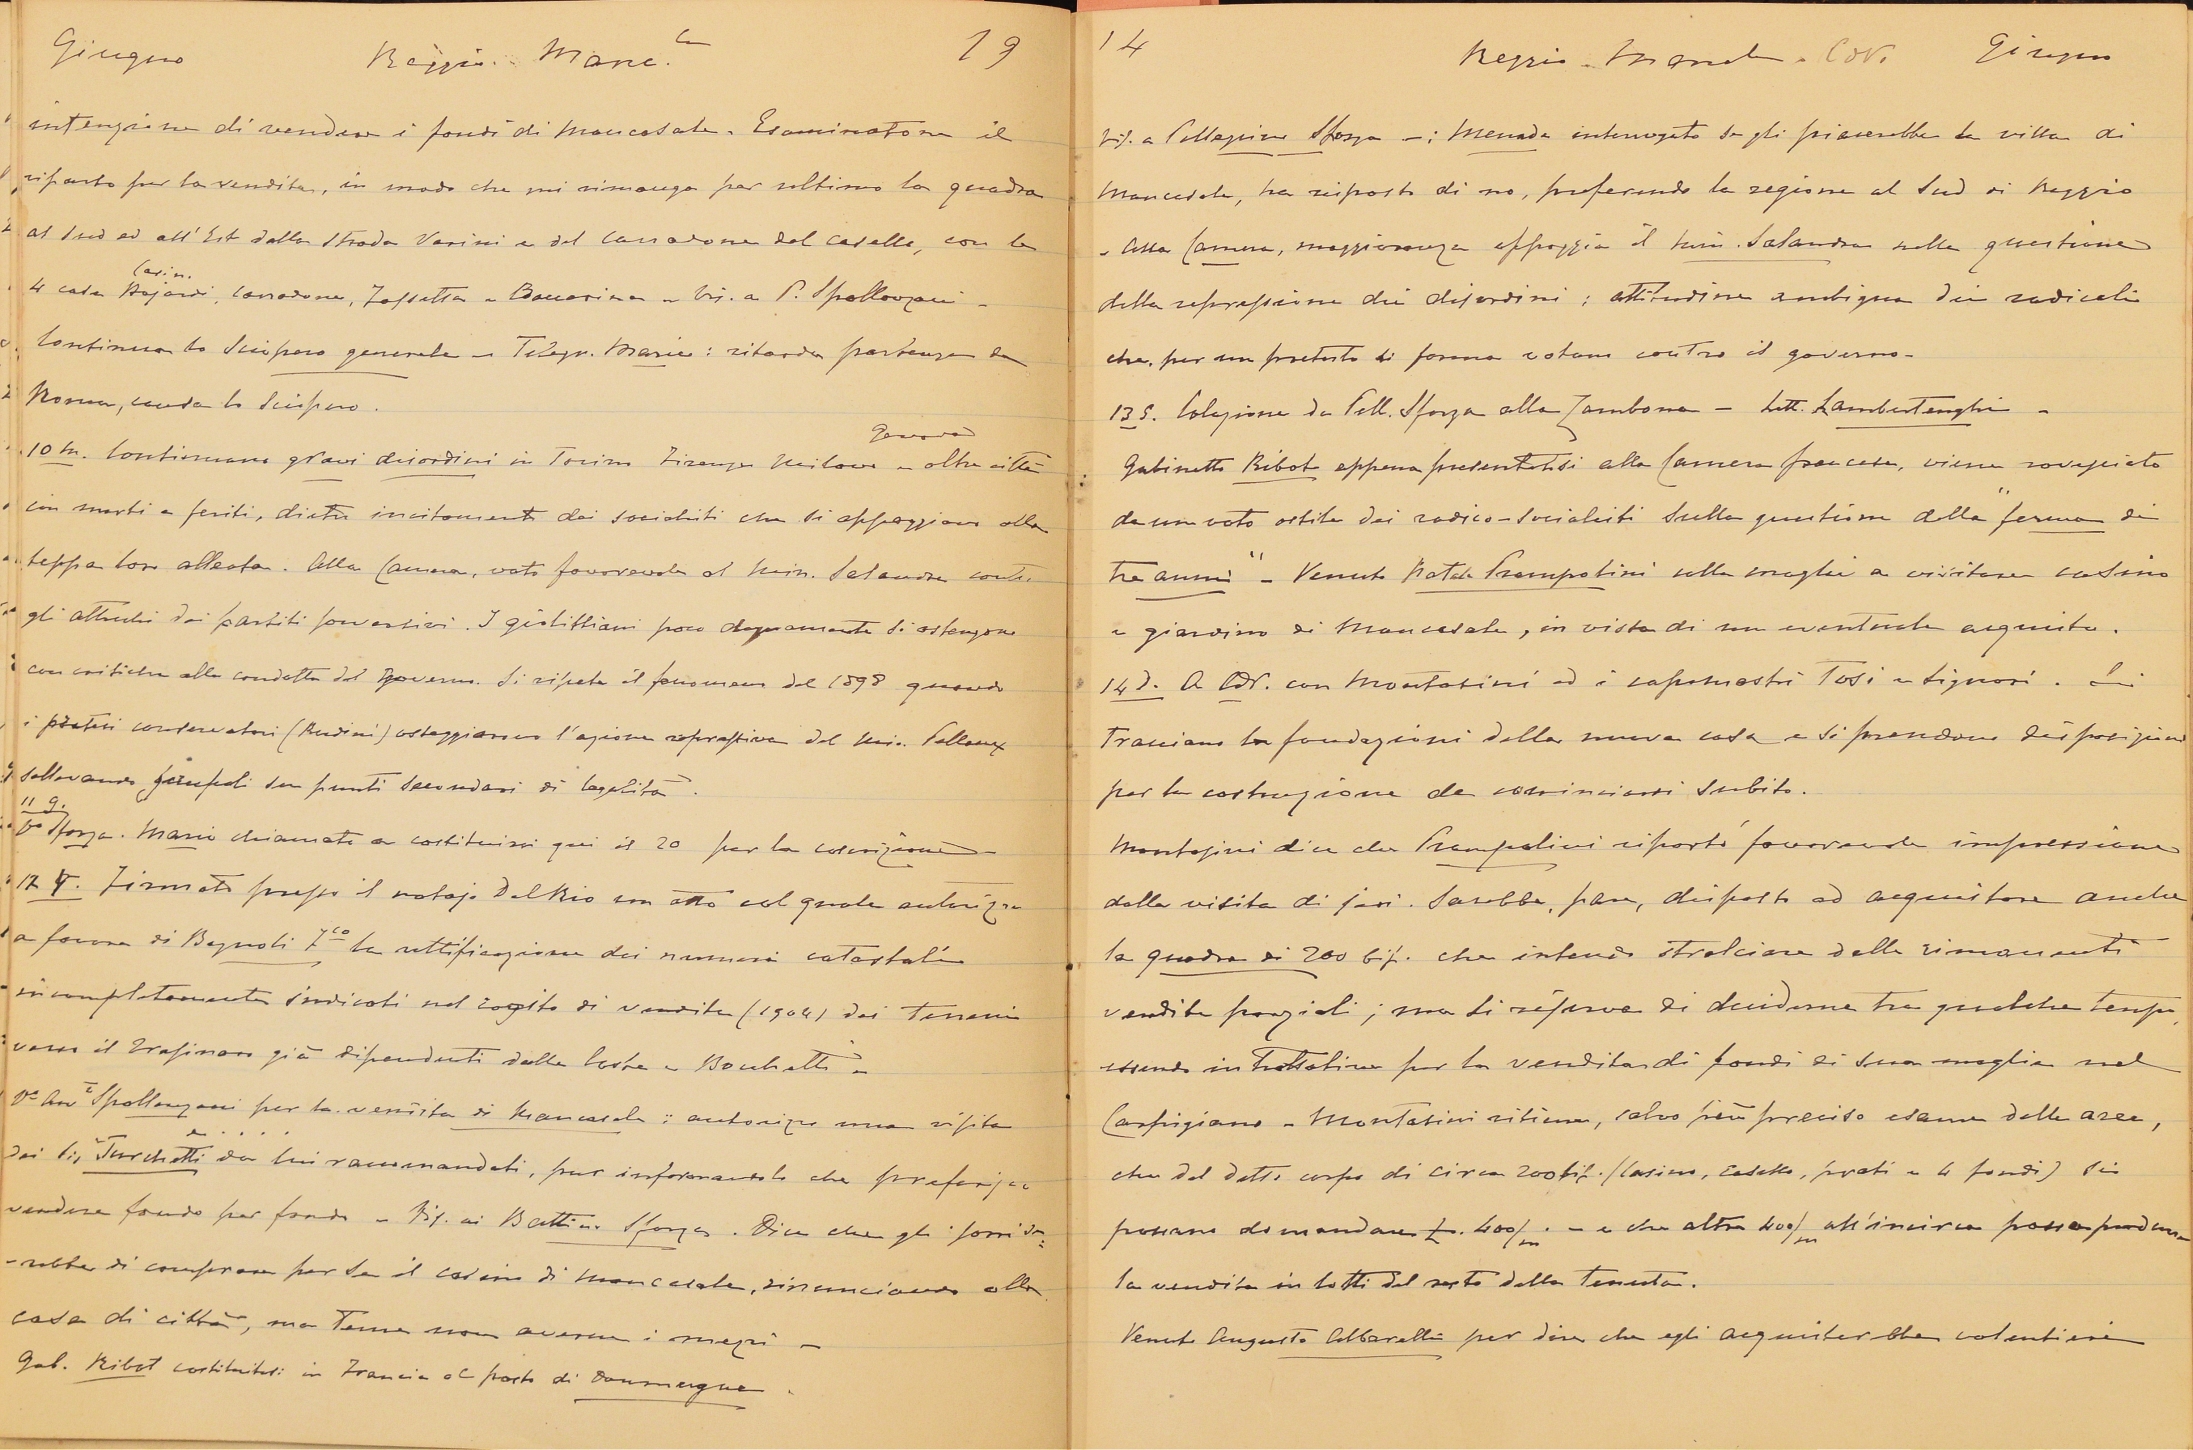 Giugno Reggio - Manc.le 19
intenzione di vendere i fondi di Mancasale. Esaminatone il
riparto per la vendita, in modo che mi rimanga per ultimo la quadra
al Sud ed all'Est della strada Varini e del carradone del casello, con le
Casin.
4 case Bojardi, carradone, Zappetta e Baccarina - Vis. a P. Spallanzani -
Continua lo Sciopero generale - Telegr. Mario: ritarda partenza da
Roma, causa lo Sciopero.
Genova
10 m. Continuano gravi disordini in Torino Firenze Milano e altre città
con morti e feriti, dietro incitamenti dei socialisti che si appoggiano alla
teppa loro alleata. Alla Camera, voto favorevole al Min. Salandra contro
gli attacchi dei partiti sovversivi. I giolittiani poco degnamente si astengono
con critiche alla condotta del Governo. Si ripete il fenomeno del 1898 quando
i pretesi conservatori (Rudinì) osteggiarono l'azione repressiva del Min. Pelloux
sollevando scrupoli su punti secondari di legalità.
11 g.
Va Sforza. Mario chiamato a costituirsi qui il 20 per la coscrizione -
12 V. Firmato presso il notajo Del Rio un atto col quale autorizzo
a favore di Bagnoli Fco la rettificazione dei numeri catastali
incompletamente indicati nel rogito di vendita (1904) dei terreni
verso il Crasinaro già dipendenti dalle Coste e Bocchetti -
Va Avv. Spallanzani per la vendita di Mancasale: autorizzo una visita
dei Sig. Turchetti da lui raccomandati, pur informandolo che preferisco
vendere fondo per fondo - Vis. ai Battino Sforza. Dice che gli sorride=
-rebbe di comprare per sè il casino di Mancasale, rinunciando alla
casa di città, ma teme non averne i mezzi -
Gab. Ribot costituitosi in Francia al posto di Doumergue.
14 Reggio - Mancle - Cdv. Giugno
Vis. a Pellegrino Sforza -: Menada interrogato se gli piacerebbe la villa di
Mancasale, ha risposto di no, preferendo la regione al Sud di Reggio
- Alla Camera, maggioranza appoggia il Min. Salandra nella questione
della repressione dei disordini; attitudine ambigua dei radicali
che, per un pretesto di forma votano contro il governo -
13 S. Colazione da Pell. Sforza alla Zambona - Lett. Lambertenghi -
Gabinetto Ribot appena presentatosi alla Camera francese, viene rovesciato
da un voto ostile dei radico-socialisti sulla questione della "ferma di
tre anni" - Venuto Natale Prampolini colla moglie a visitare casino
e giardino di Mancasale, in vista di un eventuale acquisto.
14 D. A Cdv. con Montasini ed i capomastri Tosi e Signori. Si
tracciano le fondazioni della nuova casa e si prendono disposizioni
per la costruzione da cominciarsi subito.
Montasini dice che Prampolini riportò favorevole impressione
dalla visita di jeri. Sarebbe, pare, disposto ad acquistare anche
la quadra di 200 bif. che intendo stralciare dalle rimanenti
vendite parziali; ma si riserva di decidere tra qualche tempo,
essendo in trattative per la vendita di fondi di sua moglie nel
Carpigiano - Montasini ritiene, salvo più preciso esame delle aree,
che del detto corpo di circa 200 bif. (casino, casello, prati e 4 fondi) si
possano domandare £. 400/m. - e che altre 400/m all'incirca possa produrre
la vendita in lotti del resto della tenuta.
Venuto Augusto Albarelli per dire che egli acquisterebbe volentieri